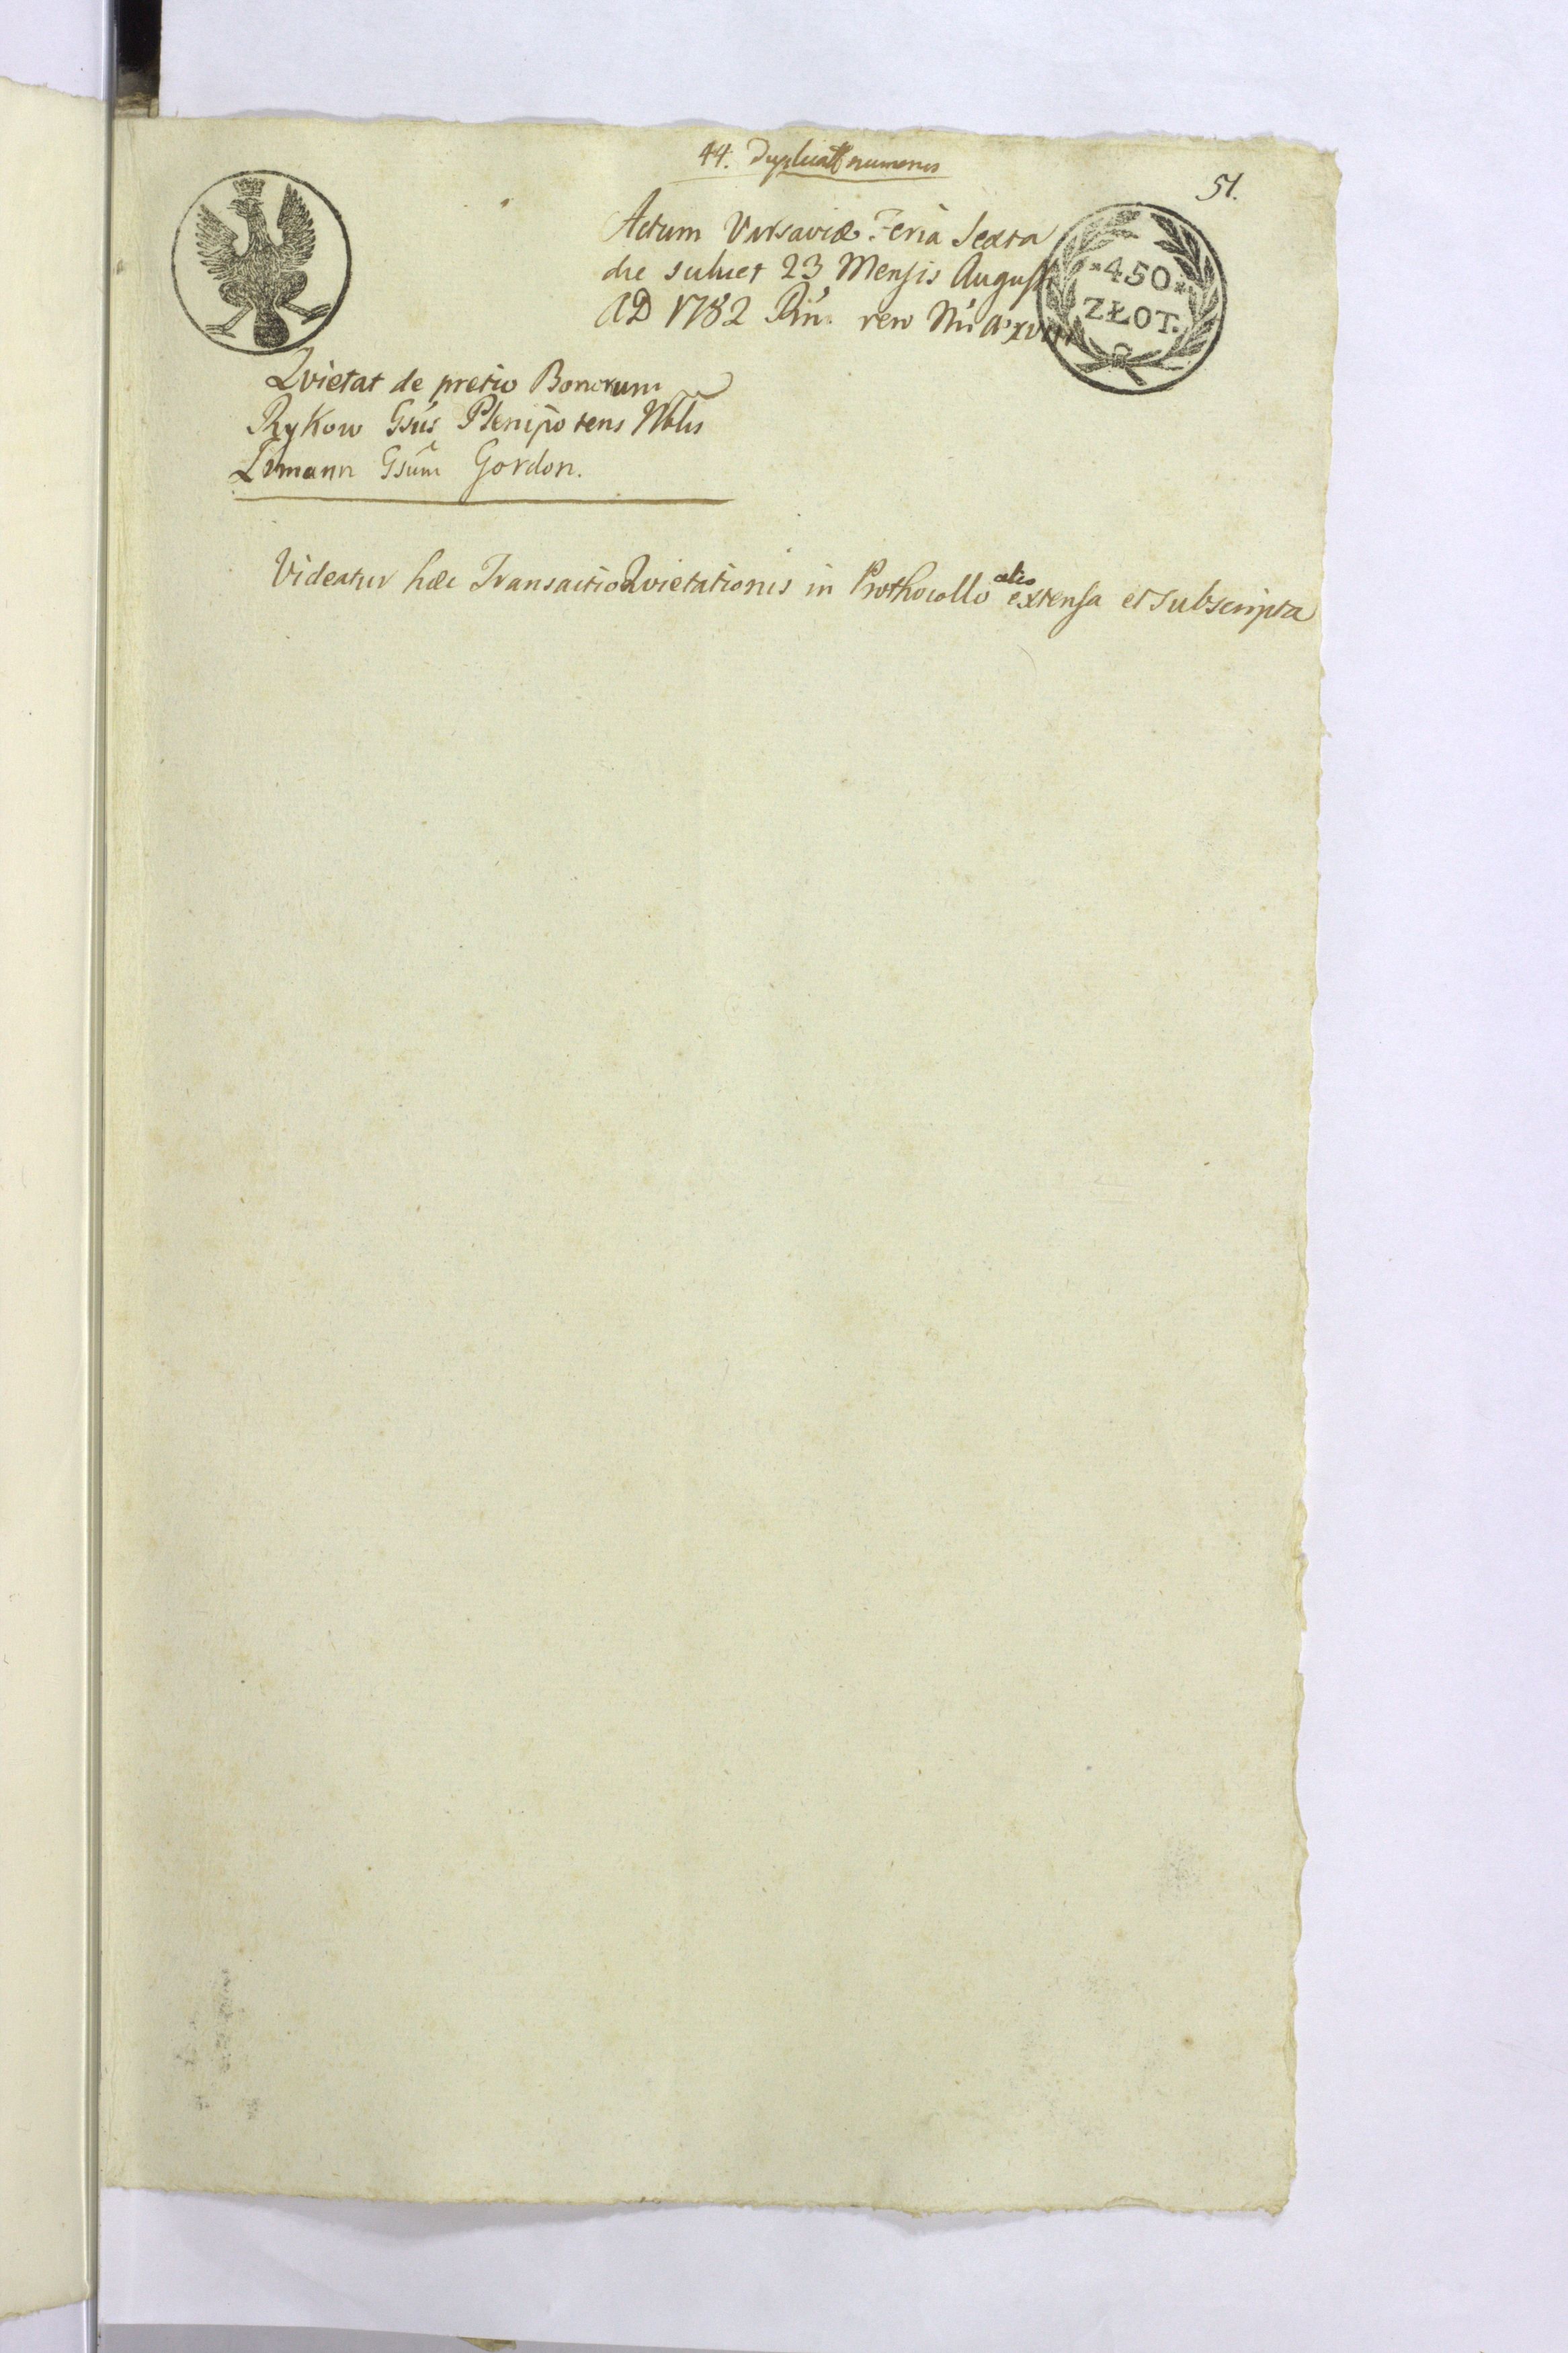 44. Duplicat numerus
51.
Actum Varsaviæ Feria Sexta
die scilicet 23 Mensis August
AD 1782 Rñi vero Ñri Aº XVIII
*450*
ZŁOT.
Qvietat de pretio Bonorum
Rykow Gsús Plenipotens Nblis
Gsum̃ Gordon.
Videatur hæc Transactio Qvietationis in Prothocollo alio extensa et subscripta